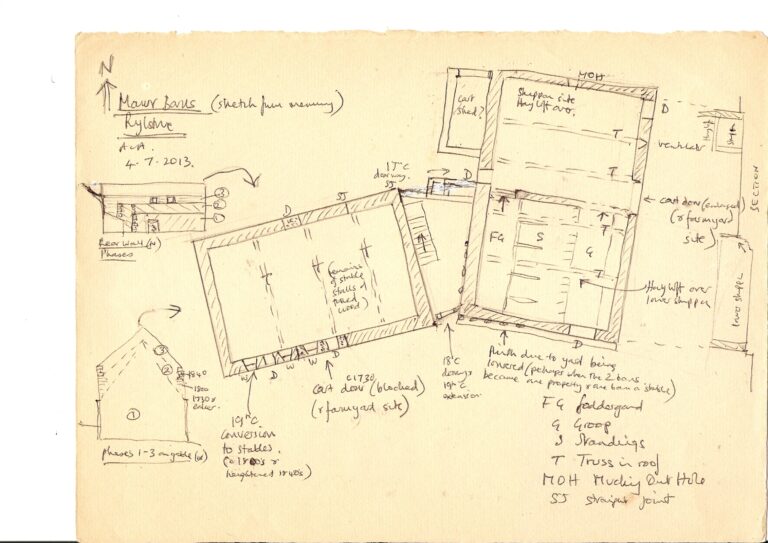 N
Manor Barns (sketch from memory)
Rylstone
4.7.2013.
MOH
cart
shed?
Shippon site
Hayloft over.
D
T
ventilator
Hayloft
SECTION
17thC
doorway
D
SJ
SJ
D
cart door (enlarged)
(& farmyard
site)
③
②
①
Rear wall (N)
Phases
FG
S
G
T
T
T
(remains
of stable
stalls of
turned
wood)
Hayloft over
lower shippon
lower shippon
D
W D W W D
③
②
1840
1800
①
Phases 1-3 on gable (W)
19thC
Conversion
to stables.
heightened 1840's)
c1730
cart door (blocked)
(& farmyard site)
18thC
doorway
19thC
extension
Plinth due to yard being
lowered (perhaps when the 2 barns
became one property & one barn a stable)
FG foddergang
G Groop
S Standings
T Truss in roof
MOH Mucking Out Hole
SJ straight joint